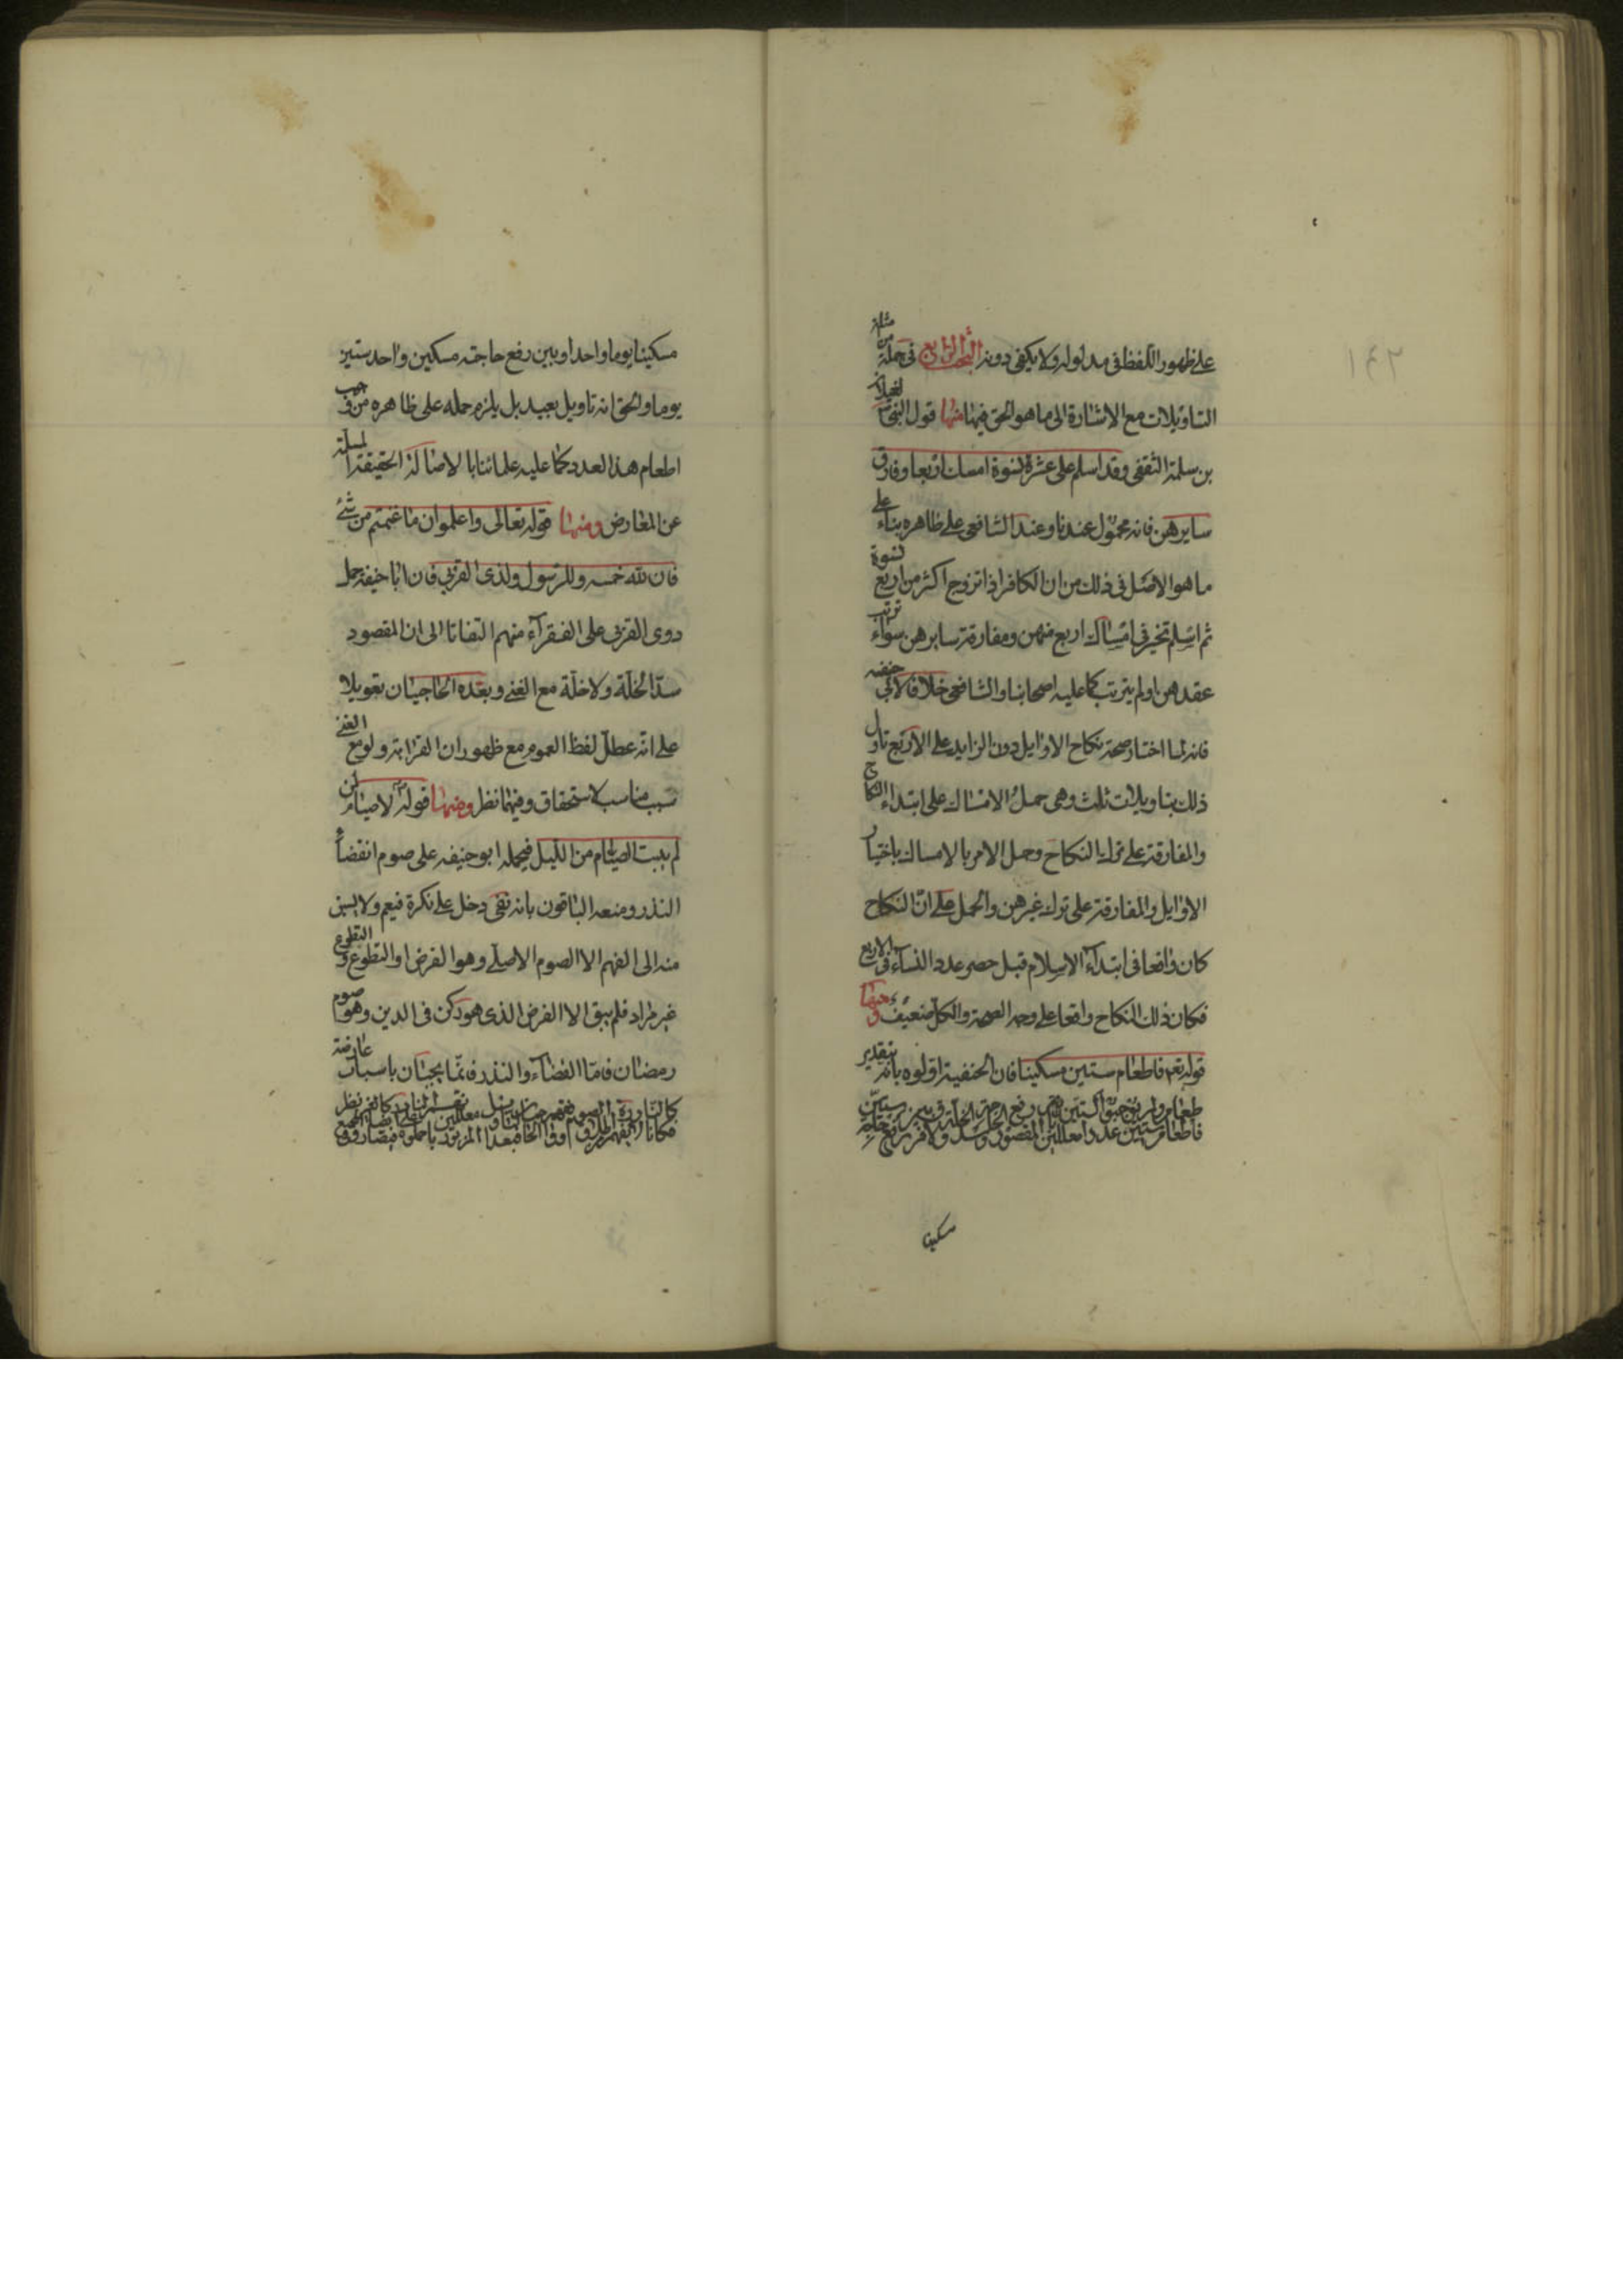 على ظهور اللفظ فى مدلوله ولا يكفى دونه البحث الرابع فى جملة من مثله
التاويلات مع الاشارة الى ما هو الحق فيها منها قول النبى لغيلان
بن سلمة الثقفى وقد اسلم على عشرة نسوة امسك اربعا وفارق
سايرهن فانه محمول عندنا وعند الشافعى على ظاهره بناء على
ما هو الاصل فى ذلك من ان الكافر اذا تزوج اكثر من اربع نسوة
ثم اسلم تخير فى امساك اربع منهن ومفارقة سايرهن سواء ترتب
عقدهن او لم يترتب كما عليه اصحابنا والشافعى خلافا لابى حنيفه
فانه لما اختار صحة نكاح الاوايل دون الزايد على الاربع تاول
ذلك بتاويلات ثلث وهى حمل الامساك على ابتداء النكاح
والمفارقة على ترك النكاح وحمل الامر بالامساك باختيار
الاوايل والمفارقة على ترك غيرهن والحمل على ان النكاح
كان واقعا فى ابتداء الاسلام قبل حصر عدد النساء فى الاربع
فكان ذلك النكاح واقعا على وجه الصحة والكل ضعيف ومنها
قوله تعم فاطعام ستين مسكينا فان الحنفية اولوه بانه بتقدير
طعام
فاطعام ستين
مسكينا
مسكينا يوما واحدا وبين رفع حاجته مسكين واحد ستين
يوما والحق انه تاويل بعيد بل يلزم حمله على ظاهره من وجوب
اطعام هذا العدد كما عليه علمائنا بالاصالة الحقيقة السليمة
عن المعارض ومنها قوله تعالى واعلموا ان ما غنمتم من شئ
فان لله خمسه وللرسول ولذى القربى فان ابا حنيفة حمل
ذوى القربى على الفقراء منهم التفاتا الى ان المقصود
سد الخلة ولا خلة مع الغنى وبعده الحاجبيان تعويلا
على انه عطل لفظ العموم مع ظهور ان القرابة ولو مع الغنى
سبب مناسب لاستحقاق وفيهما نظر ومنها قوله لا صيام لمن
لم يبيت الصيام من الليل فيحمله ابو حنيفه على صوم القضاء
النذر ومنعه الباقون بانه نفى دخل على نكرة فيعم ولا يسبق
منه الى الفهم الا الصوم الاصلى وهو الفرض او التطوع والتطوع
غير مراد فلم يبق الا الفرض الذى هو ركن فى الدين وهو صوم
رمضان فاما القضاء والنذر فانما يجبان باسباب عارضة